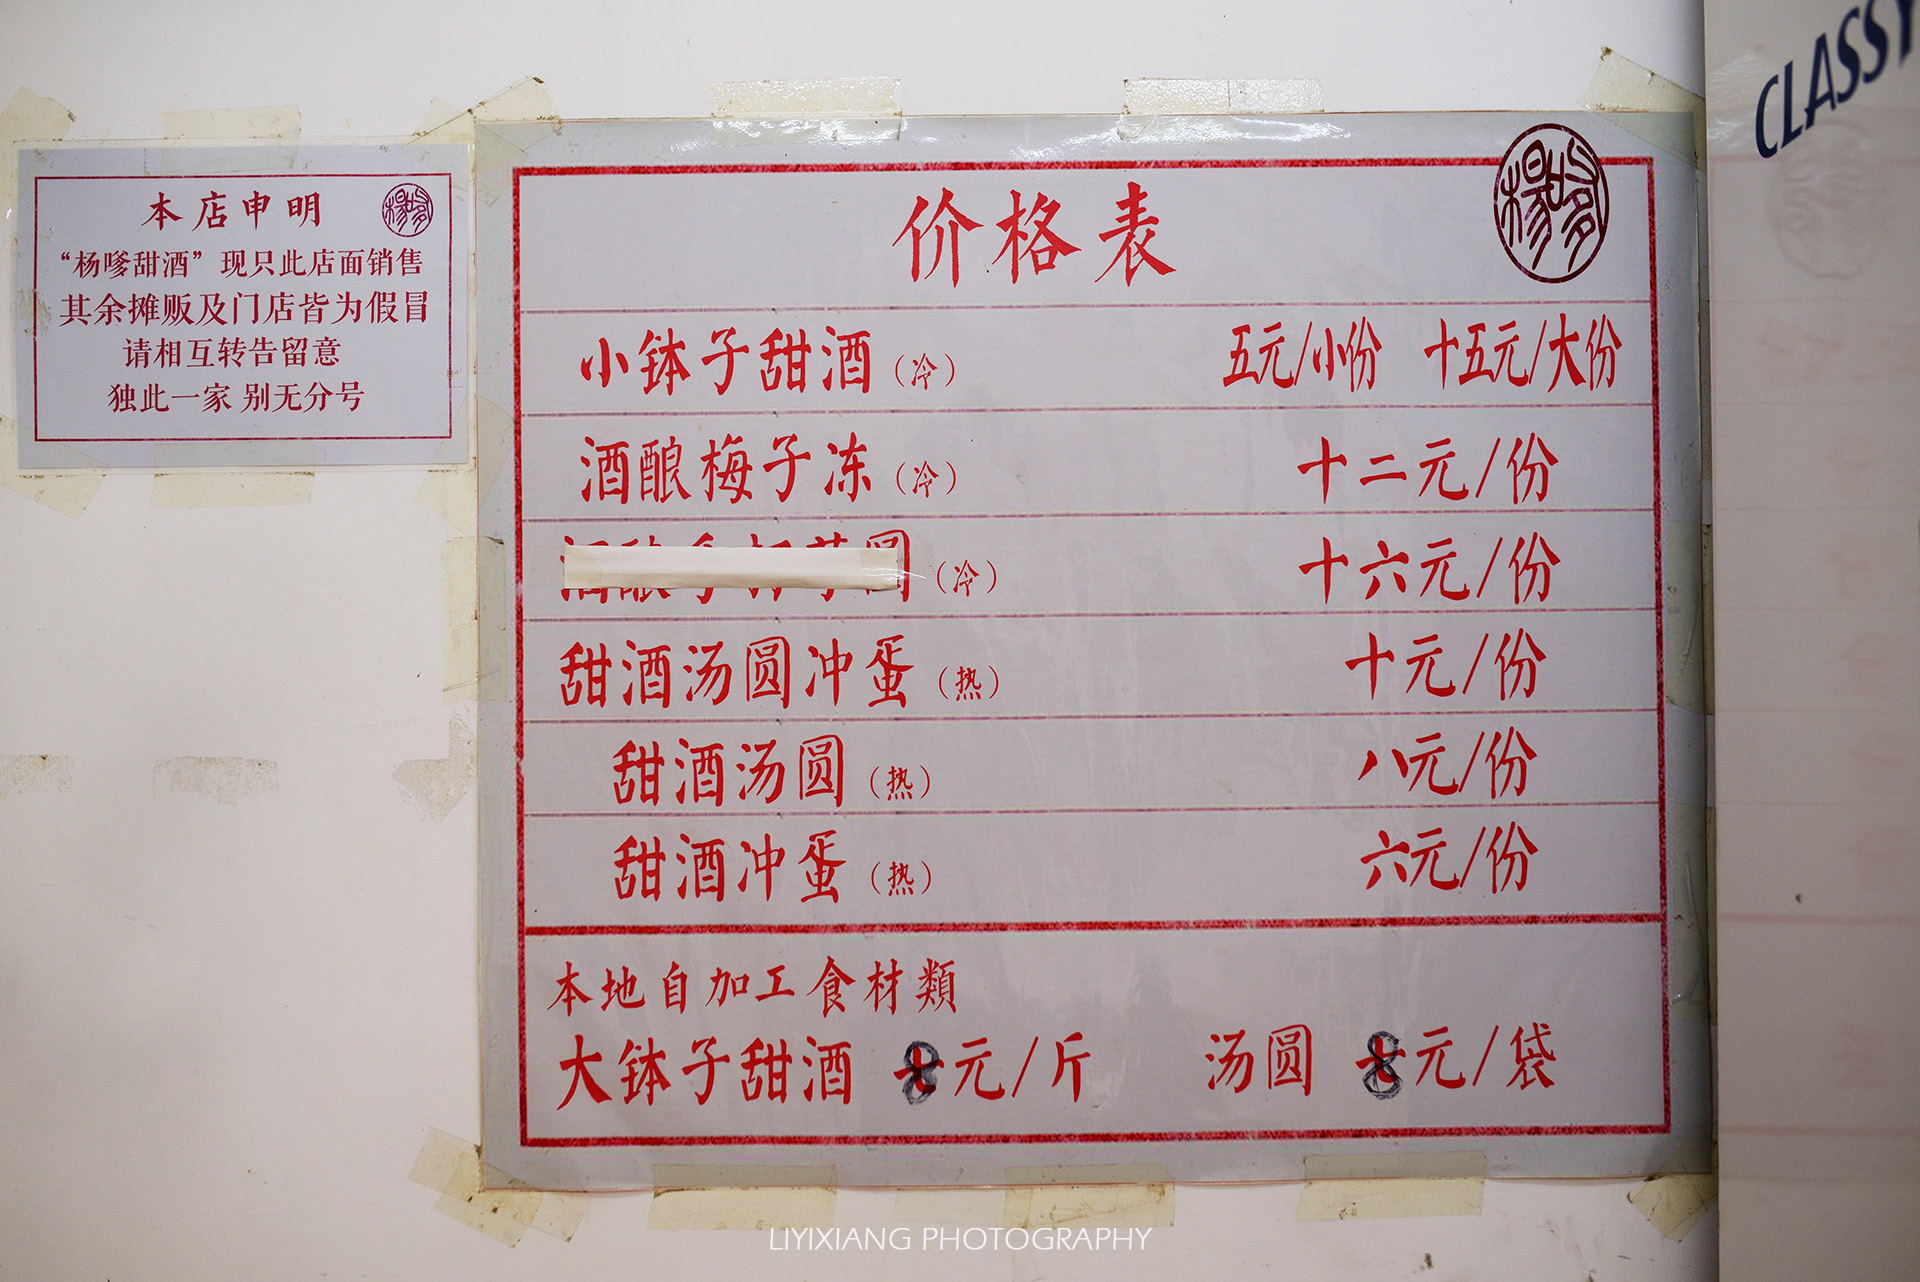 本店申明
“杨嗲甜酒”现只此店面销售
其余摊贩及门店皆为假冒
请相互转告留意
独此一家 别无分号
价格表
小钵子甜酒（冷） 五元/小份 十五元/大份
酒酿梅子冻（冷） 十二元/份
（冷） 十六元/份
甜酒汤圆冲蛋（热） 十元/份
甜酒汤圆（热） 八元/份
甜酒冲蛋（热） 六元/份
本地自加工食材類
大钵子甜酒 8元/斤 汤圆 8元/袋
CLASSY
LIYIXIANG PHOTOGRAPHY